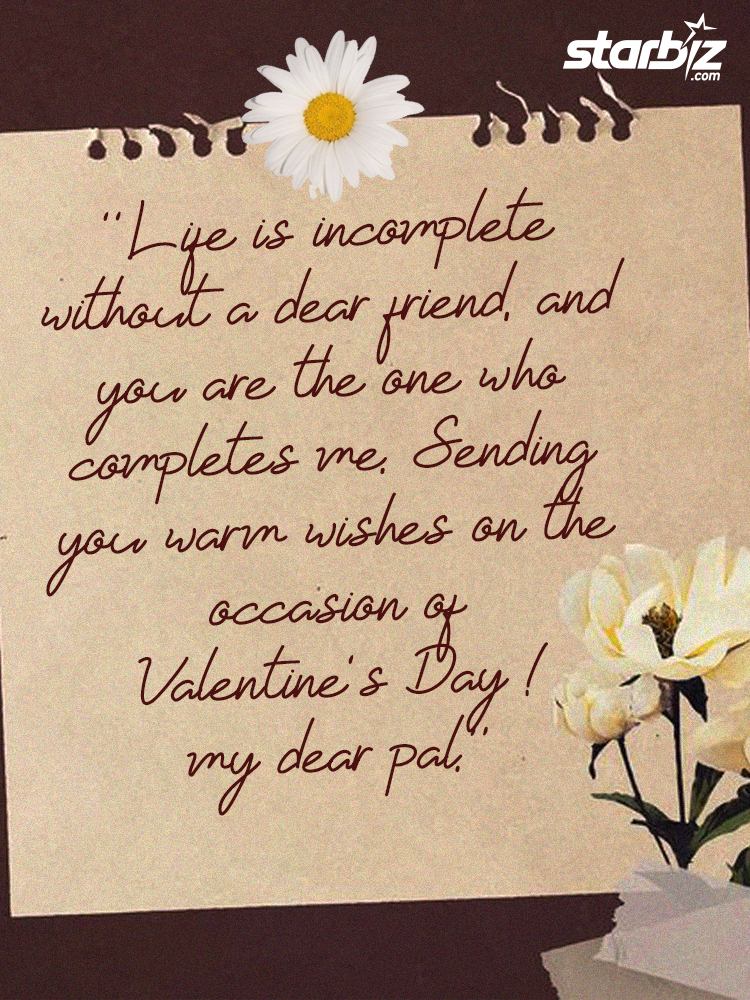 starbiz
.com
"Life is incomplete
without a dear friend, and
you are the one who
completes me. Sending
you warm wishes on the
occasion of
Valentine's Day !
my dear pal."